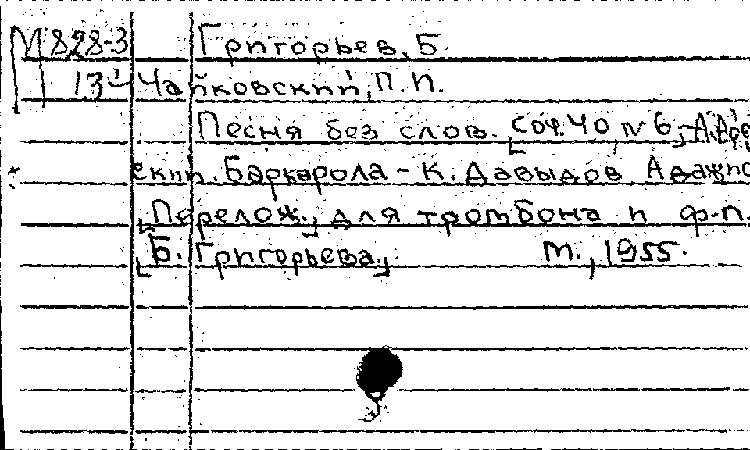 М 828-3 Григорьев, Б.
13 Чайковский, П. И.
Песня без слов. [Соч. 40, № 6;]
ский. Баркарола - К. Давыдов Адажио
[Перелож.] для тромбона и ф-п.
[Б. Григорьева.] М., 1955.